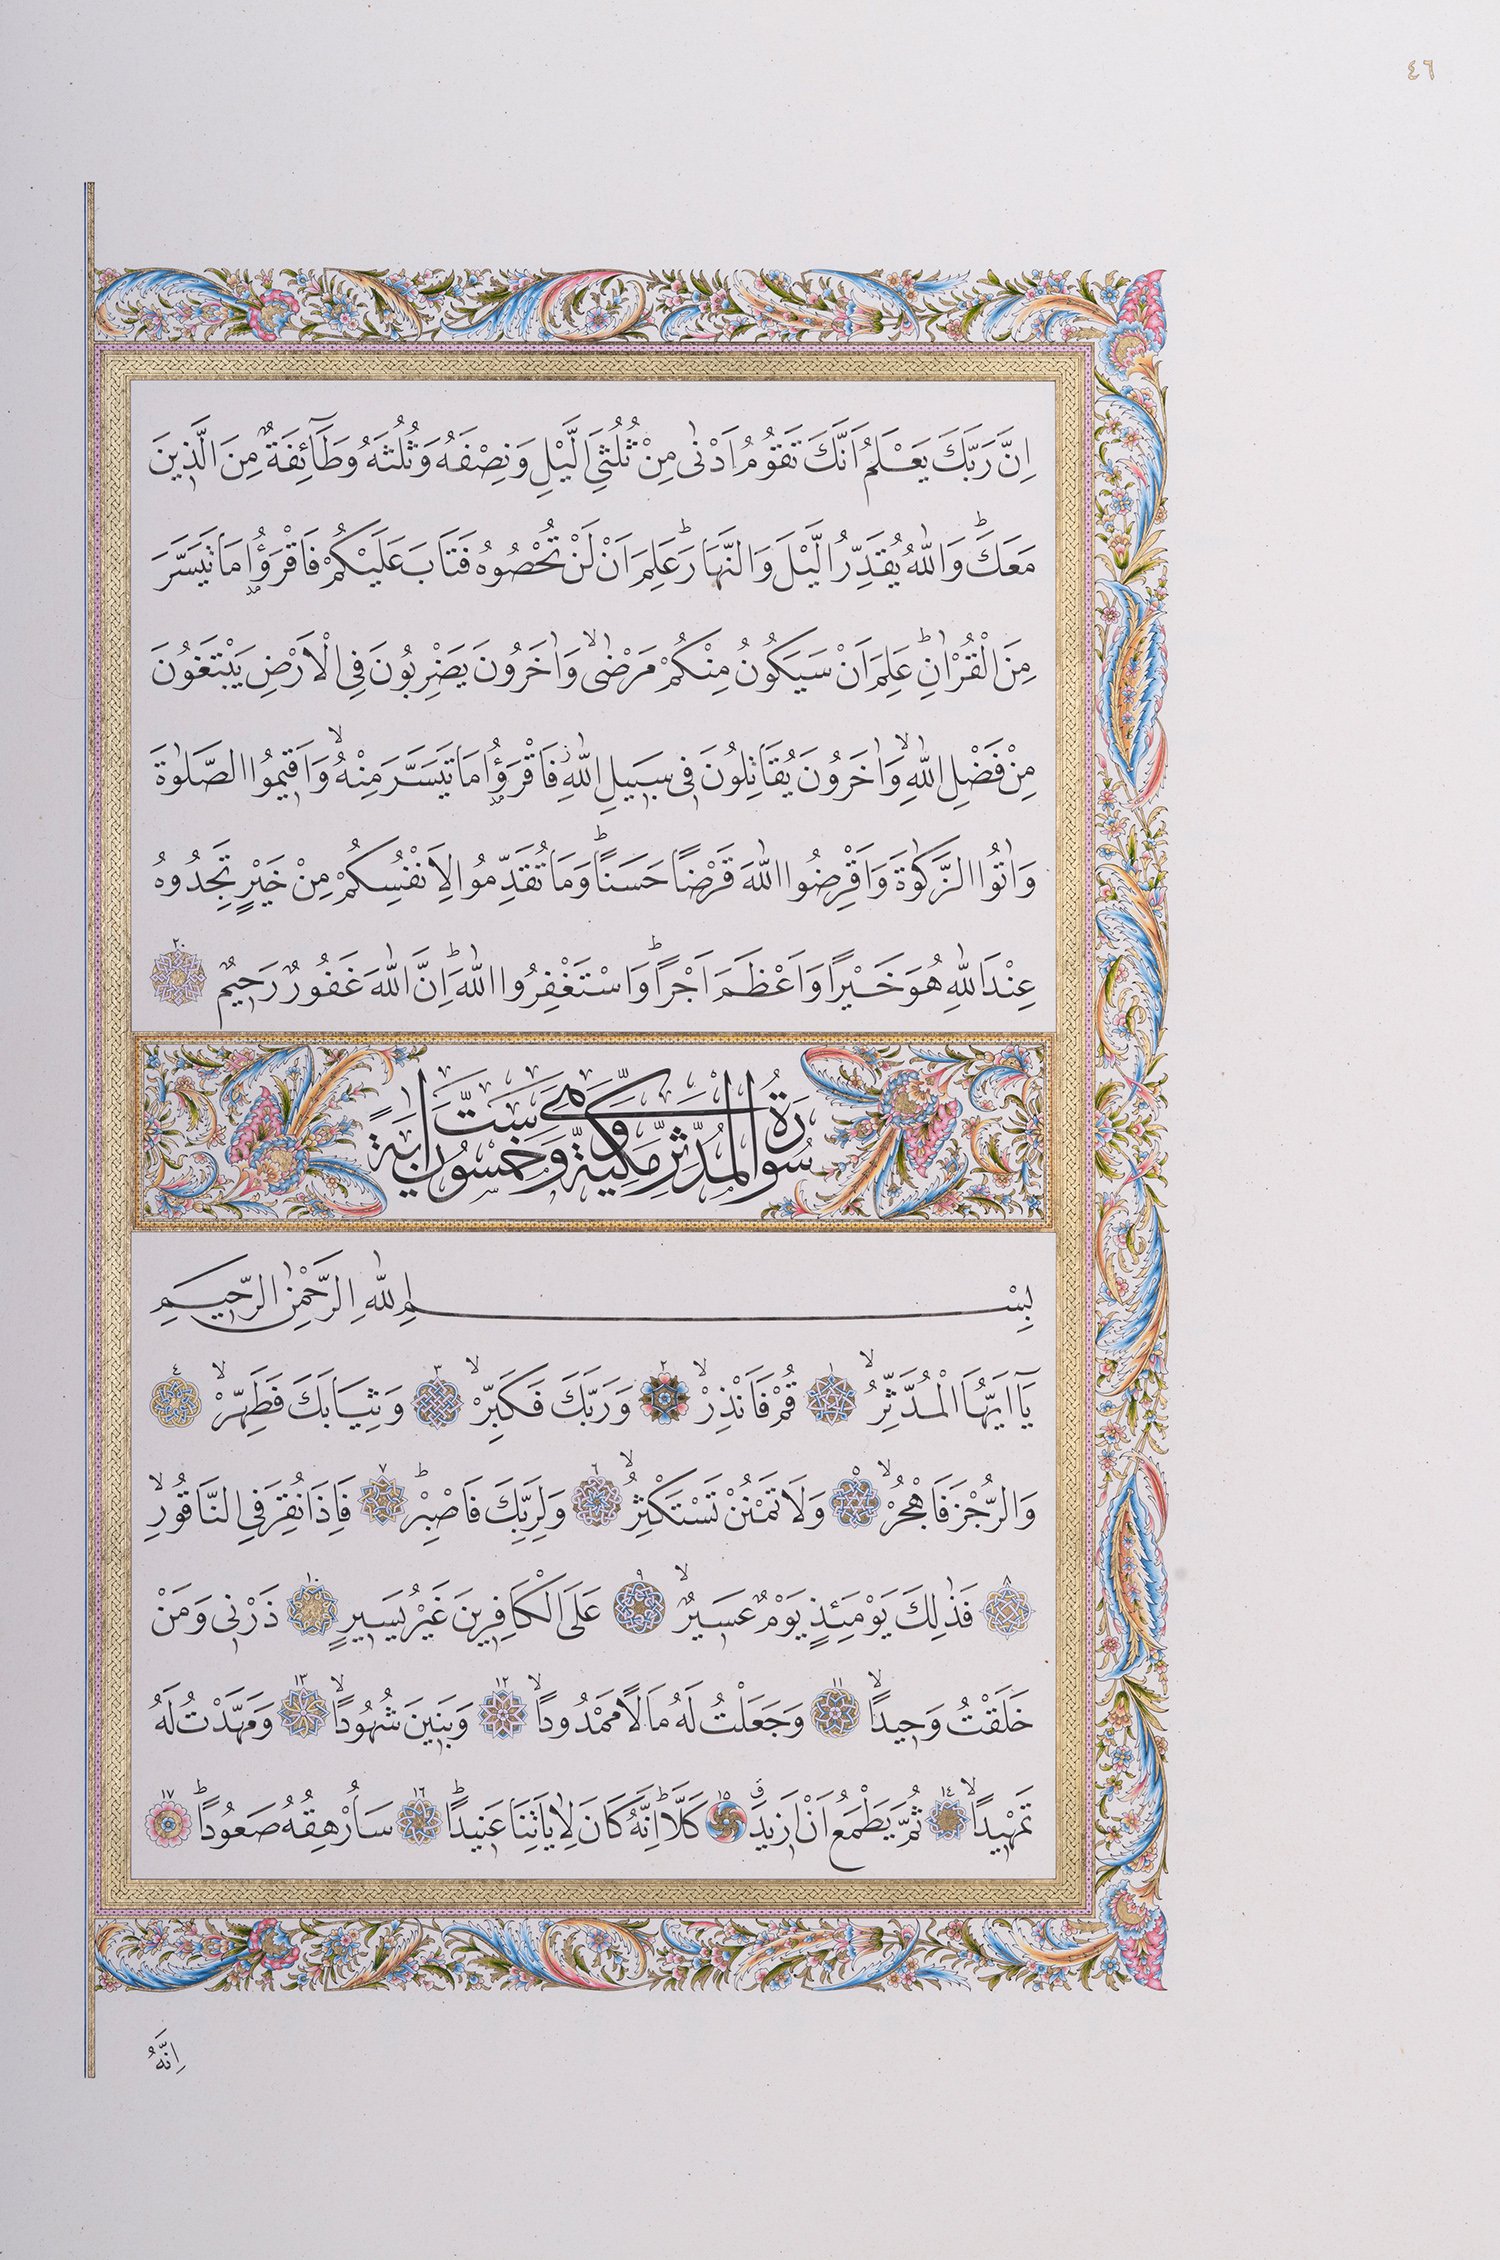 ٤٦
اِنَّ رَبَّكَ يَعْلَمُ اَنَّكَ تَقُومُ اَدْنٰى مِنْ ثُلُثَيِ الَّيْلِ وَنِصْفَهُ وَثُلُثَهُ وَطَٓائِفَةٌ مِنَ الَّذِينَ
مَعَكَؕ وَاللّٰهُ يُقَدِّرُ الَّيْلَ وَالنَّهَارَؕ عَلِمَ اَنْ لَنْ تُحْصُوهُ فَتَابَ عَلَيْكُمْ فَاقْرَؤُ۫ا مَا تَيَسَّرَ
مِنَ الْقُرْاٰنِؕ عَلِمَ اَنْ سَيَكُونُ مِنْكُمْ مَرْضٰىۙ وَاٰخَرُونَ يَضْرِبُونَ فِي الْاَرْضِ يَبْتَغُونَ
مِنْ فَضْلِ اللّٰهِۙ وَاٰخَرُونَ يُقَاتِلُونَ فِي سَبِيلِ اللّٰهِؗ فَاقْرَؤُ۫ا مَا تَيَسَّرَ مِنْهُۙ وَاَقِيمُوا الصَّلٰوةَ
وَاٰتُوا الزَّكٰوةَ وَاَقْرِضُوا اللّٰهَ قَرْضًا حَسَنًاؕ وَمَا تُقَدِّمُوا لِاَنْفُسِكُمْ مِنْ خَيْرٍ تَجِدُوهُ
عِنْدَ اللّٰهِ هُوَ خَيْرًا وَاَعْظَمَ اَجْرًاؕ وَاسْتَغْفِرُوا اللّٰهَؕ اِنَّ اللّٰهَ غَفُورٌ رَحِيمٌ ٢٠
سُورَةُ الْمُدَّثِّرِ مَكِّيَّةٌ وَهِيَ سِتٌّ وَخَمْسُونَ اٰيَةً
بِسْمِ اللّٰهِ الرَّحْمٰنِ الرَّحِيمِ
يَٓا اَيُّهَا الْمُدَّثِّرُۙ ١ قُمْ فَاَنْذِرْۙ ٢ وَرَبَّكَ فَكَبِّرْۙ ٣ وَثِيَابَكَ فَطَهِّرْۙ ٤
وَالرُّجْزَ فَاهْجُرْۙ ٥ وَلَا تَمْنُنْ تَسْتَكْثِرُۙ ٦ وَلِرَبِّكَ فَاصْبِرْؕ ٧ فَاِذَا نُقِرَ فِي النَّاقُورِۙ
٨ فَذٰلِكَ يَوْمَئِذٍ يَوْمٌ عَسِيرٌۙ ٩ عَلَى الْكَافِرِينَ غَيْرُ يَسِيرٍ ١٠ ذَرْنِي وَمَنْ
خَلَقْتُ وَحِيدًاۙ ١١ وَجَعَلْتُ لَهُ مَالًا مَمْدُودًاۙ ١٢ وَبَنِينَ شُهُودًاۙ ١٣ وَمَهَّدْتُ لَهُ
تَمْهِيدًاۙ ١٤ ثُمَّ يَطْمَعُ اَنْ اَزِيدَۗ ١٥ كَلَّاؕ اِنَّهُ كَانَ لِاٰيَاتِنَا عَنِيدًاؕ ١٦ سَاُرْهِقُهُ صَعُودًاؕ ١٧
اِنَّهُ